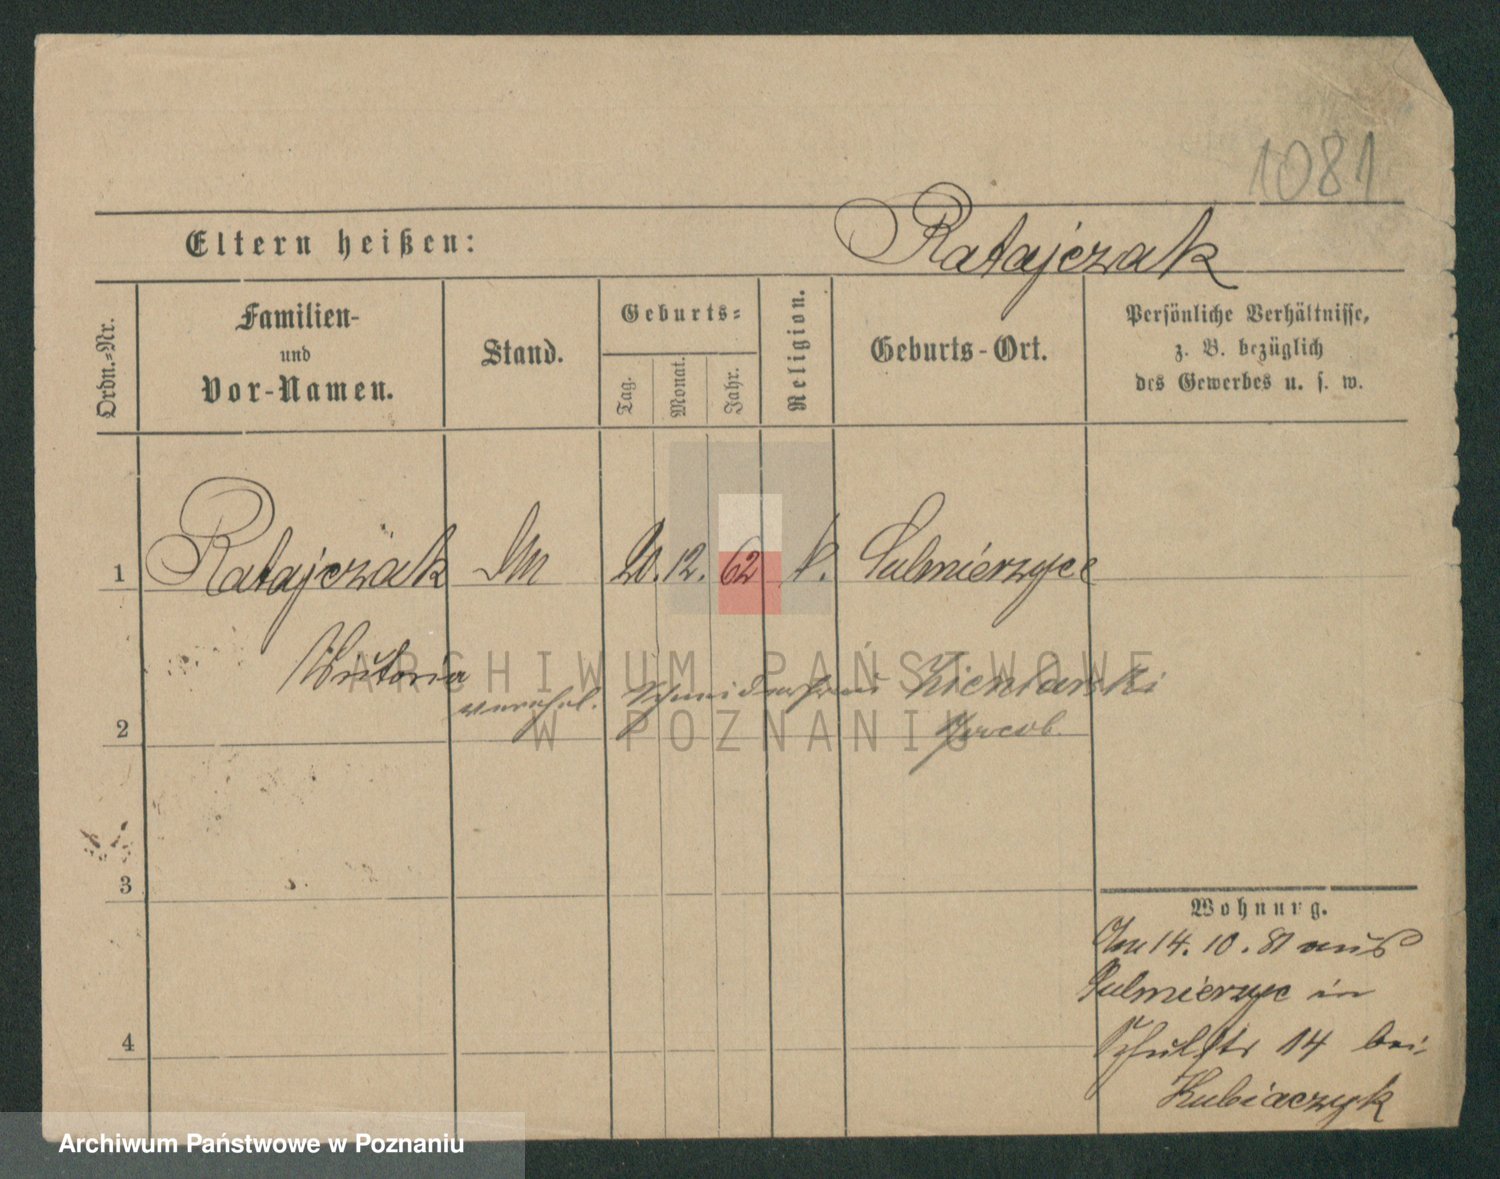 1081
Eltern heißen:
Ratajczak
Ordn.-Nr.
Familien-
und
Vor-Namen.
Stand.
Geburts-
Tag.
Monat.
Jahr.
Religion.
Geburts-Ort.
Persönliche Verhältnisse,
z. B. bezüglich
des Gewerbes u. s. w.
1 Ratajczak 20. 12. 62 k. Sulmierzyce
Wiktoria
verehel. Schneiderfrau
Jacob.
2
3
4
Wohnung.
Am 14. 10. 81 aus
Sulmierzyc in
Schulstr 14 bei
Kubiaczyk
ARCHIWUM PAŃSTWOWE
W POZNANIU
Archiwum Państwowe w Poznaniu